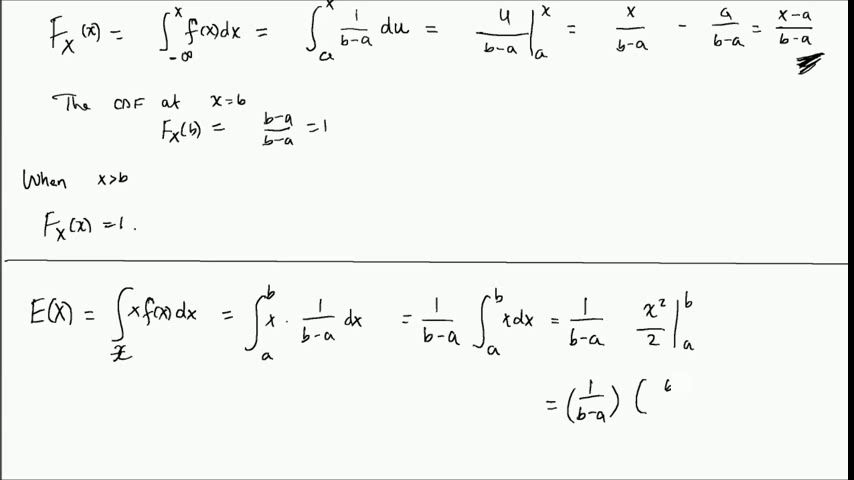 F_X(x) = ∫_{-∞}^{x} f(x)dx = ∫_{a}^{x} 1/(b-a) du = u/(b-a) |_{a}^{x} = x/(b-a) - a/(b-a) = (x-a)/(b-a)
The CDF at x=b
F_X(b) = (b-a)/(b-a) = 1
When x>b
F_X(x) = 1.
E(X) = ∫_{x} x f(x) dx = ∫_{a}^{b} x · 1/(b-a) dx = 1/(b-a) ∫_{a}^{b} x dx = 1/(b-a) x²/2 |_{a}^{b}
= (1/(b-a)) ( b